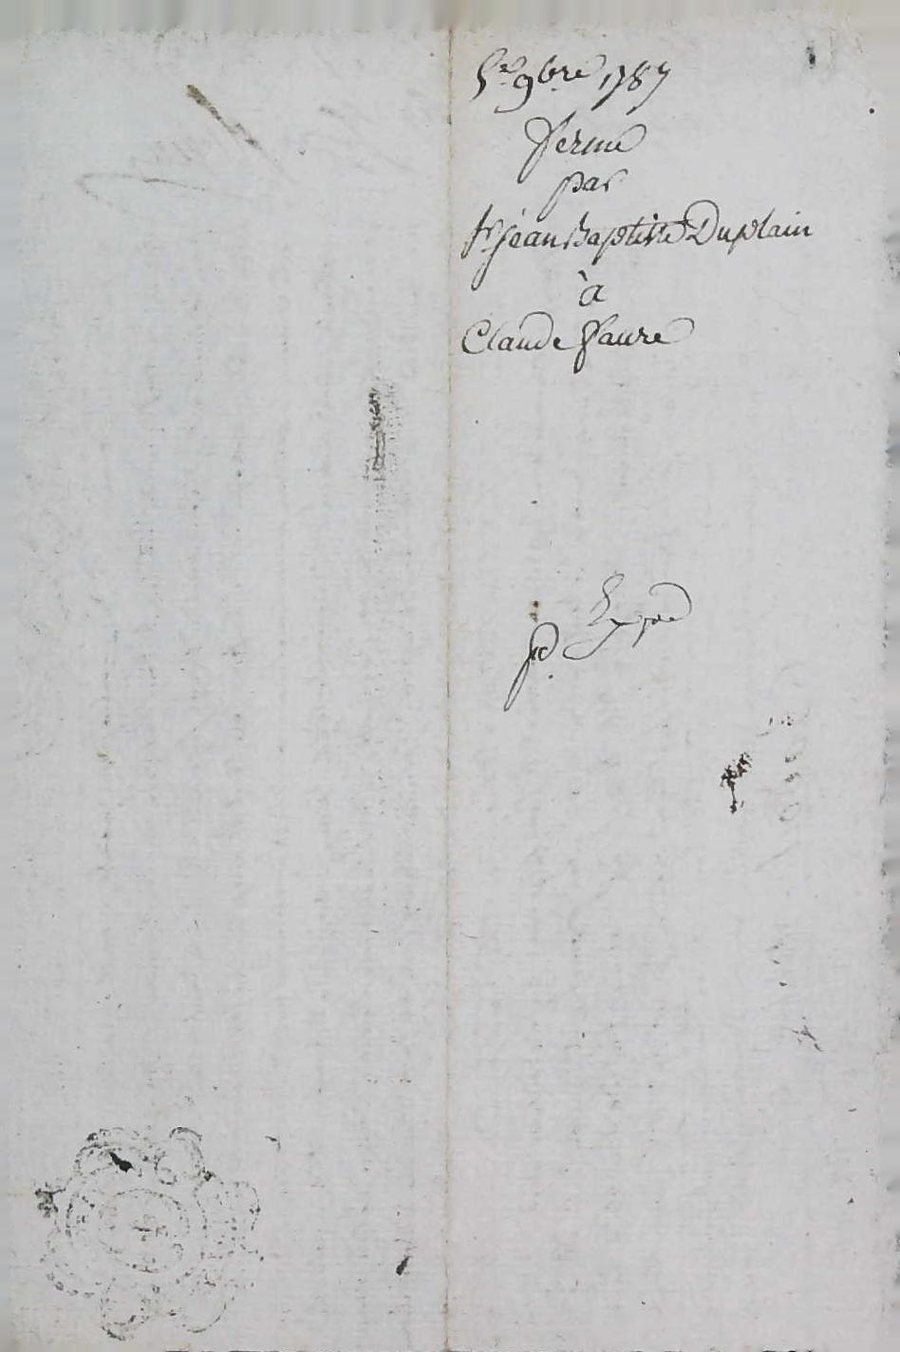 5e 9bre 1787
ferme
par
Sr jean Baptiste Duplain
à
Claude faure